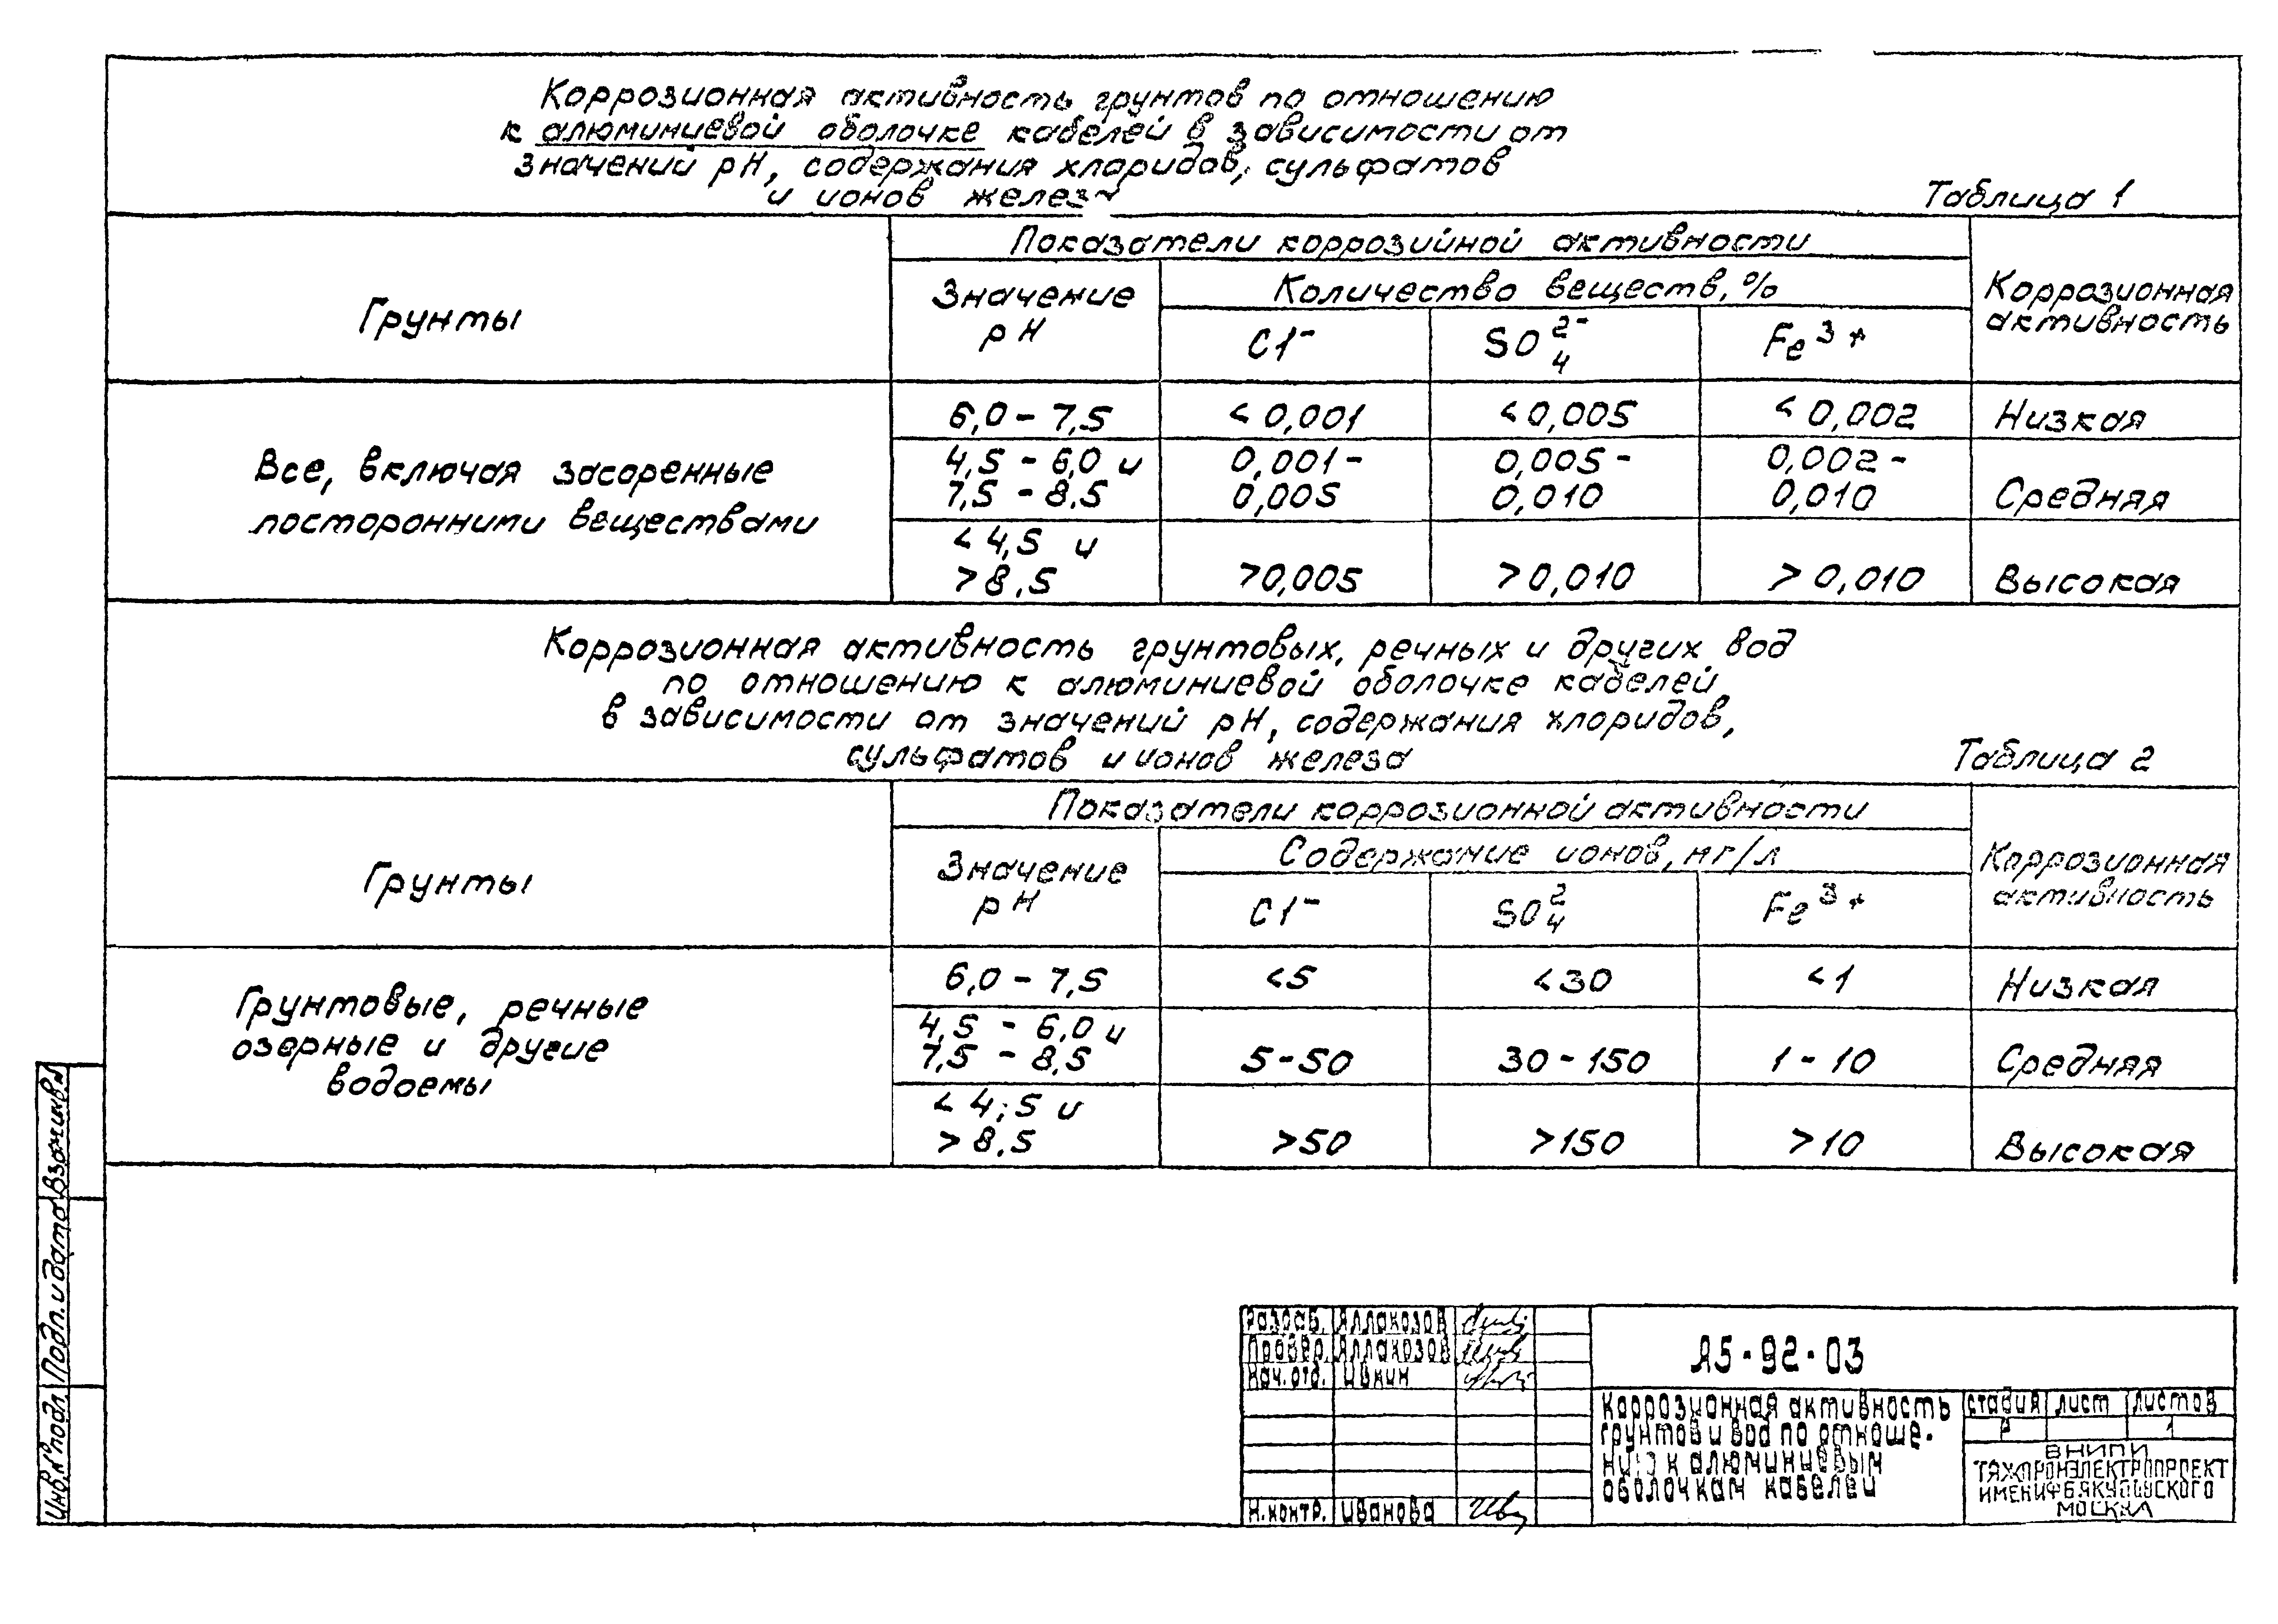 Коррозионная активность грунтов по отношению
к алюминиевой оболочке кабелей в зависимости от
значений pH, содержания хлоридов, сульфатов
и ионов желез
Таблица 1
Грунты
Показатели коррозийной активности
Коррозионная
активность
Значение
pH
Количество веществ, %
Cl⁻
SO₄²⁻
Fe³⁺
Все, включая засоренные
посторонними веществами
6,0 - 7,5
< 0,001
< 0,005
< 0,002
Низкая
4,5 - 6,0 и
7,5 - 8,5
0,001 -
0,005
0,005 -
0,010
0,002 -
0,010
Средняя
< 4,5 и
> 8,5
>0,005
>0,010
> 0,010
Высокая
Коррозионная активность грунтовых, речных и других вод
по отношению к алюминиевой оболочке кабелей
в зависимости от значений pH, содержания хлоридов,
сульфатов и ионов железа
Таблица 2
Грунты
Показатели коррозионной активности
Коррозионная
активность
Значение
pH
Содержание ионов, мг/л
Cl⁻
SO₄²
Fe³⁺
Грунтовые, речные
озерные и другие
водоемы
6,0 - 7,5
<5
<30
<1
Низкая
4,5 - 6,0 и
7,5 - 8,5
5-50
30-150
1-10
Средняя
< 4,5 и
> 8,5
>50
>150
>10
Высокая
Инв.№ подл.
Подп. и дата
Взам.инв.№
Разраб. Аллакозов
Провер. Аллакозов
Нач. отд. Ивкин
Н.контр. Иванова
А5-92-03
Коррозионная активность
грунтов и вод по отноше-
нию к алюминиевым
оболочкам кабелей
стадия лист листов
Р 1
ВНИПИ
ТЯЖПРОМЭЛЕКТРОПРОЕКТ
ИМЕНИ Ф.Б.ЯКУБОВСКОГО
МОСКВА